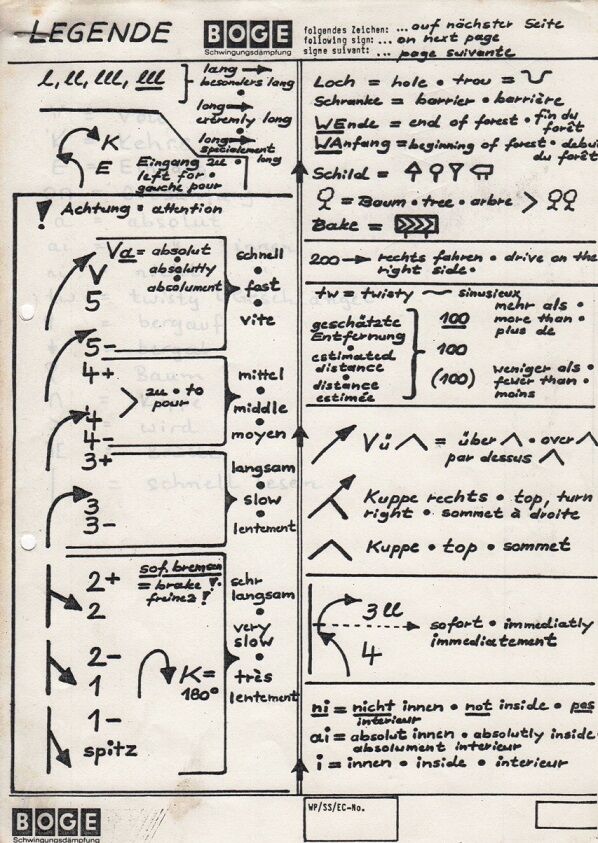 LEGENDE
BOGE
Schwingungsdämpfung
folgendes Zeichen: ... auf nächster Seite
following sign: ... on next page
signe suivant: ... page suivante
l, ll, lll, lll
lang
besonders lang
long
extremly long
long
specialement long
K
E
Eingang zu
left for
gauche pour
Achtung • attention
Va = absolut
• absolutly
absolument
V
5
5-
schnell
•
fast
•
vite
4+
4
4-
zu • to
pour
mittel
•
middle
•
moyen
3+
3
3-
langsam
•
slow
•
lentement
2+
2
sof. bremsen
= brake!
freinez!
2-
1
K=
180°
1-
spitz
sehr
langsam
•
very
slow
•
très
lentement
Loch = hole • trou =
Schranke = barrier • barrière
WEnde = end of forest • fin du
forêt
WAnfang = beginning of forest • debut
du forêt
Schild =
= Baum • tree • arbre >
Bake =
200 → rechts fahren • drive on the
right side •
tw = twisty ~ sinusieux
geschätzte
Entfernung
•
estimated
distance
•
distance
estimée
100
100
(100)
mehr als •
more than •
plus de
weniger als •
fewer than •
moins
Vü = über • over
par dessus
Kuppe rechts • top, turn
right • sommet à droite
Kuppe • top • sommet
3 ll
4
sofort • immediatly
immediatement
ni = nicht innen • not inside • pas
interieur
ai = absolut innen • absolutly inside
absolument interieur
i = innen • inside • interieur
BOGE
Schwingungsdämpfung
WP/SS/EC-No.